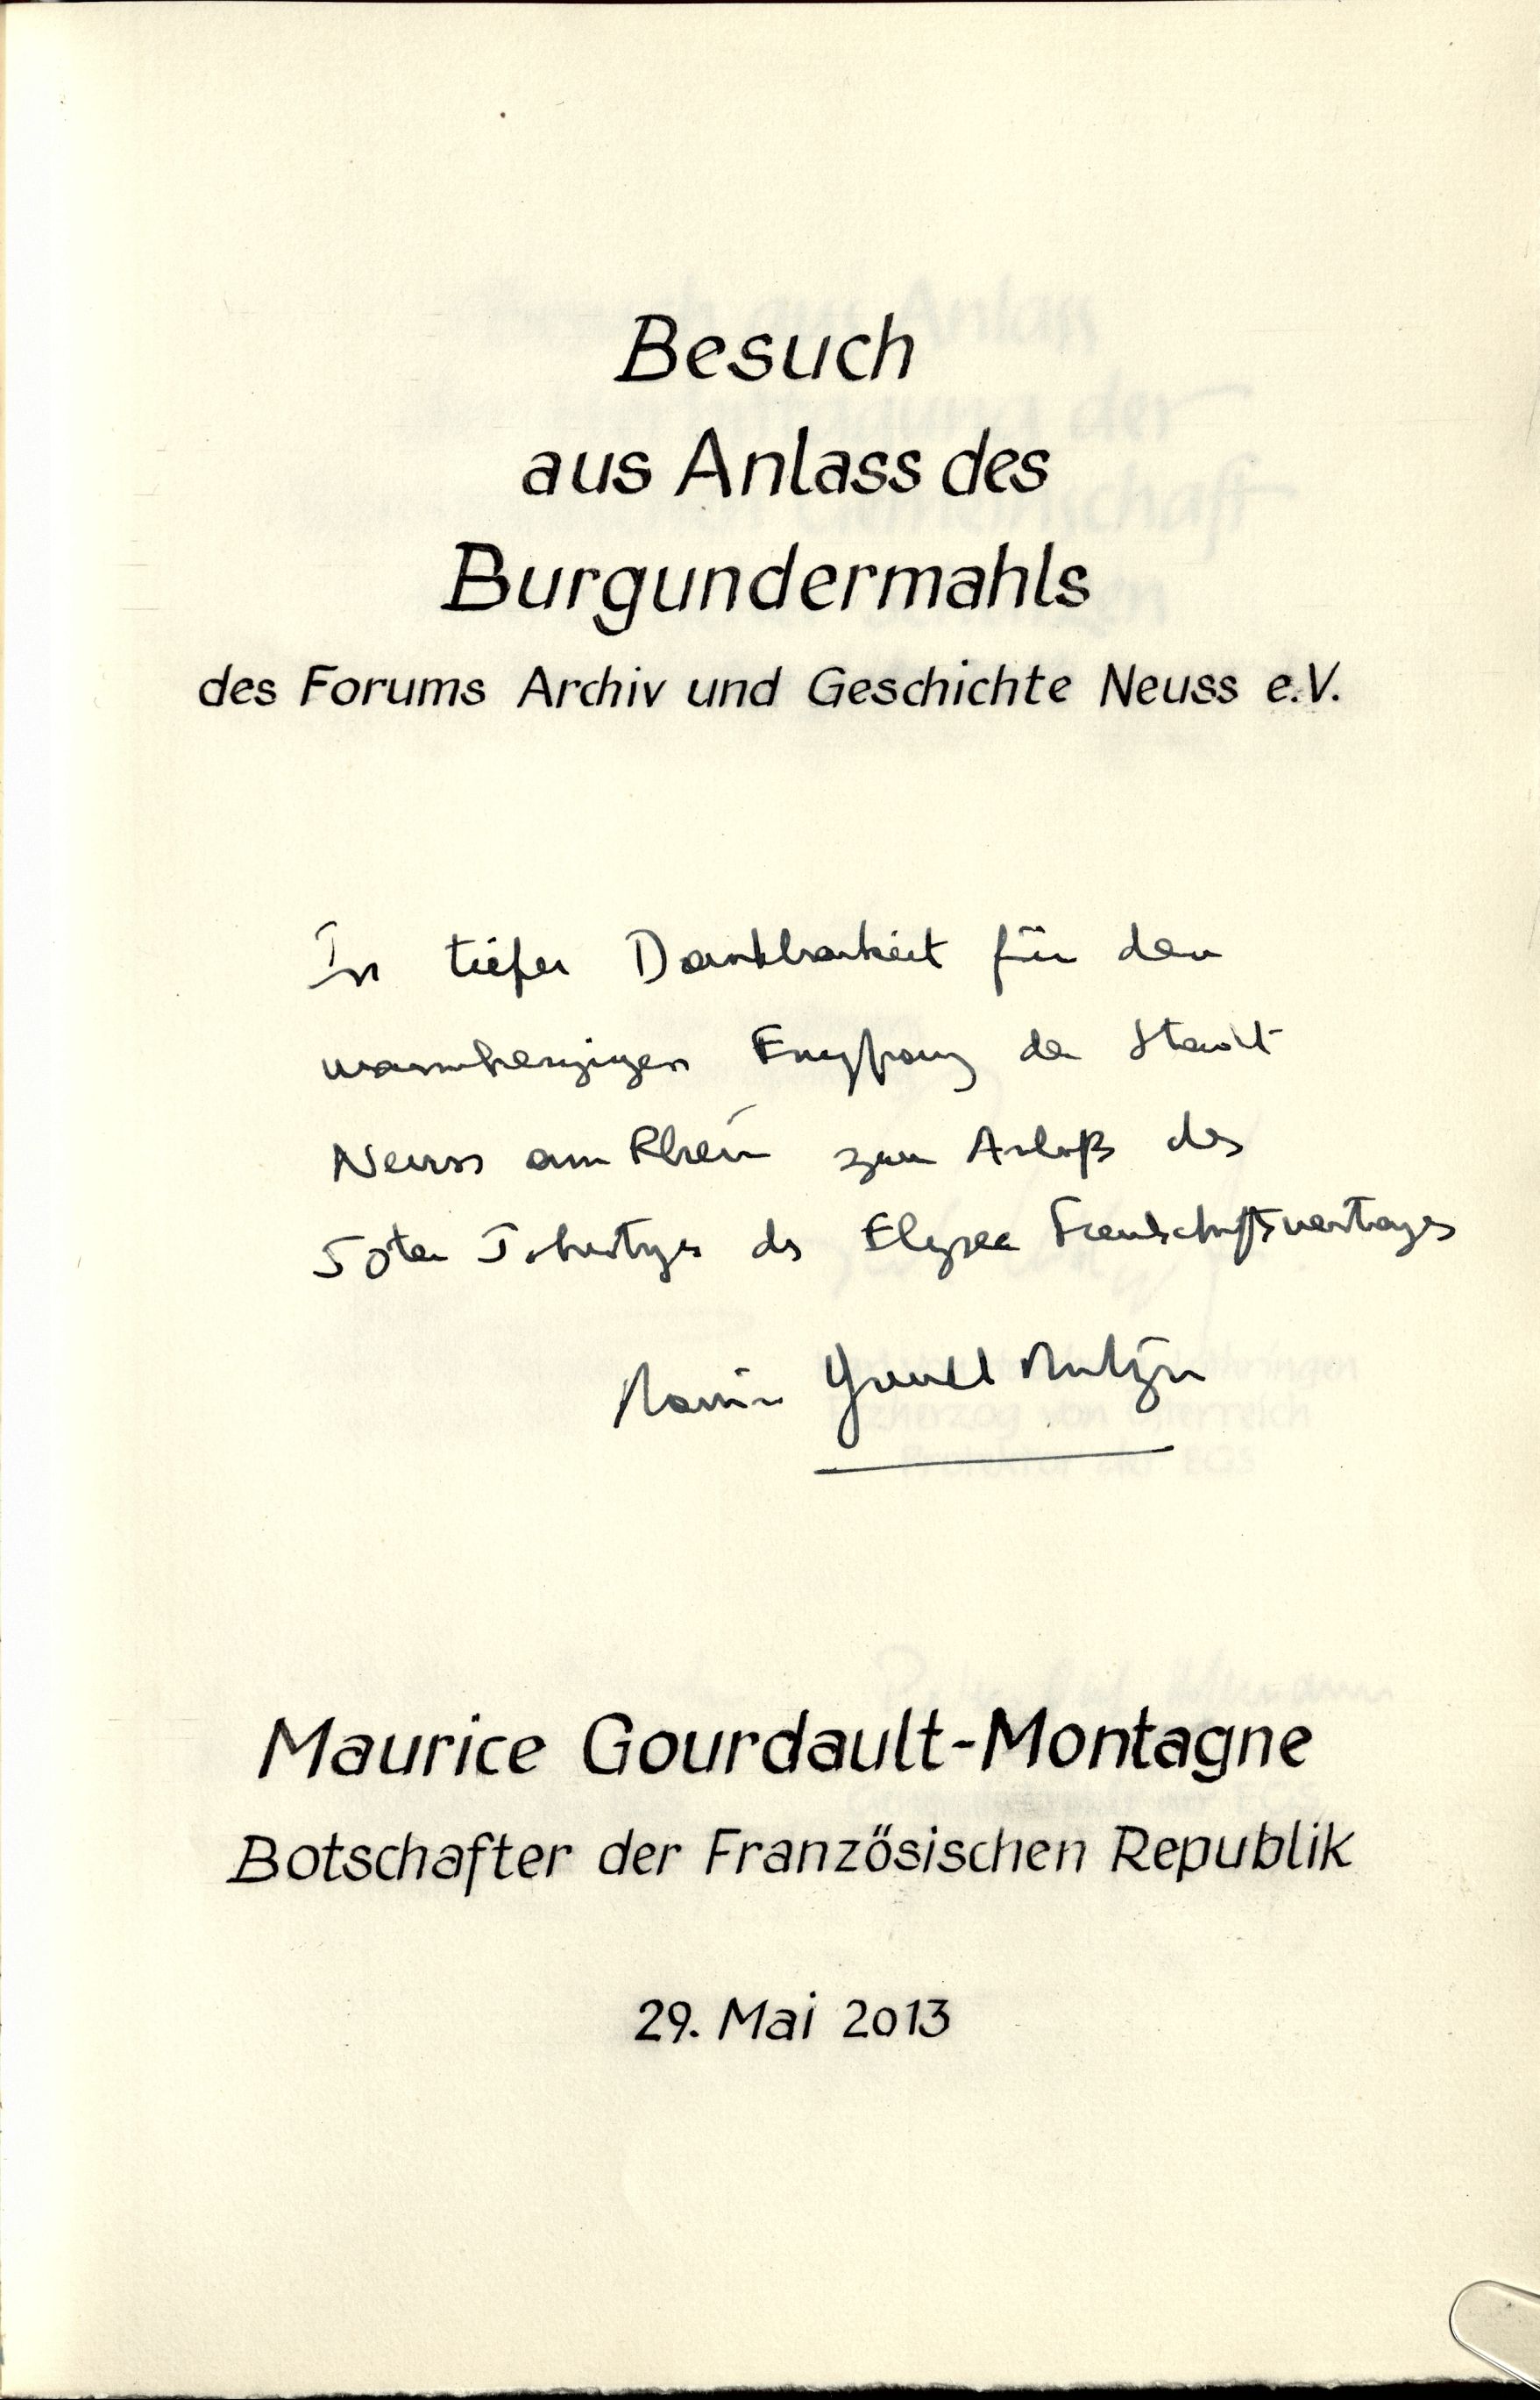 Besuch
aus Anlass des
Burgundermahls
des Forums Archiv und Geschichte Neuss e.V.
In tiefer Dankbarkeit für den
warmherzigen Empfang der Stadt
Neuss am Rhein zum Anlaß des
50ten Jahrestages des Elysee Freundschaftsvertrages
Maurice Gourdault-Montagne
Maurice Gourdault-Montagne
Botschafter der Französischen Republik
29. Mai 2013